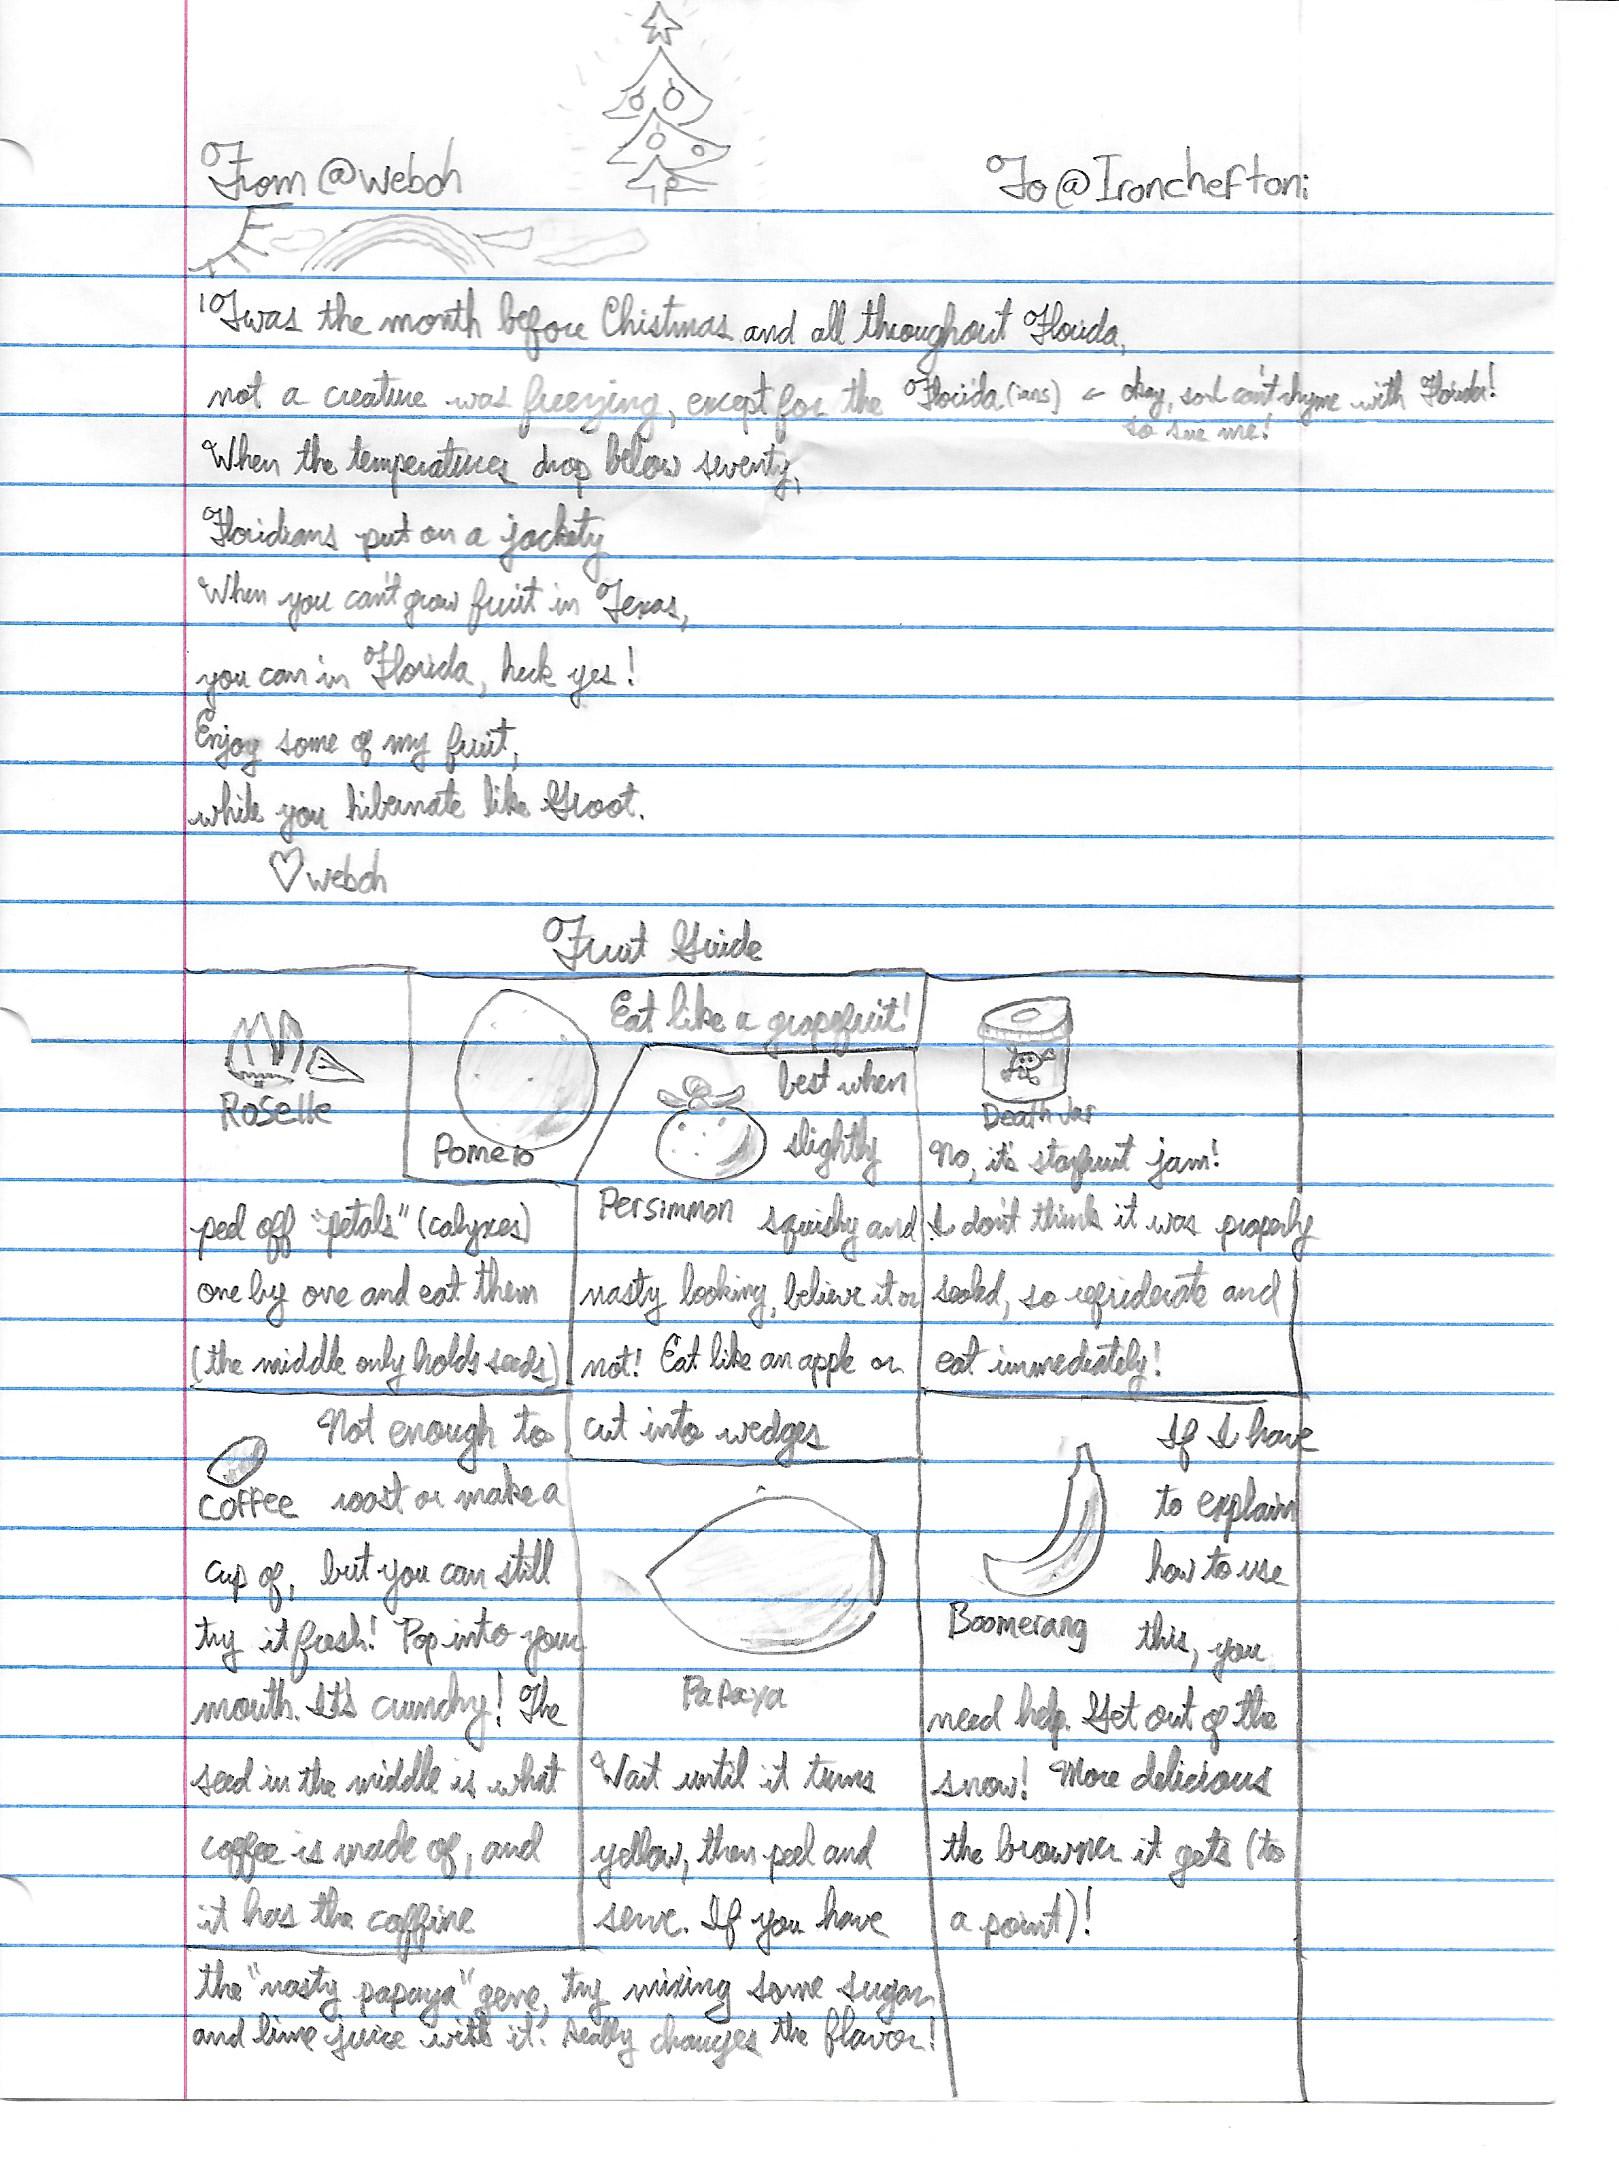 From @weboh
To @Ironcheftoni
'Twas the month before Chistmas and all throughout Florida,
not a creature was freezing, except for the Florida(ians) ← Okay, so I can't rhyme with Florida!
so sue me!
When the temperatures drop below seventy,
Floridians put on a jackety
When you can't grow fruit in Texas,
you can in Florida, heck yes!
Enjoy some of my fruit,
while you hibernate like Groot.
♡ weboh
Fruit Guide
Roselle
peel off "petals" (calyxes)
one by one and eat them
(the middle only holds seeds)
Eat like a grapefruit!
Pomelo
best when
slightly
Persimmon squishy and
nasty looking, believe it or
not! Eat like an apple or
cut into wedges
Death Jar
No, it's starfruit jam!
I don't think it was properly
sealed, so refriderate and
eat immediately!
Not enough to
Coffee roast or make a
cup of, but you can still
try it fresh! Pop into your
mouth. It's crunchy! The
seed in the middle is what
coffee is made of, and
it has the caffine
Papaya
Wait until it turns
yellow, then peel and
serve. If you have
the "nasty papaya" gene, try mixing some sugar
and lime juice with it. Really changes the flavor!
If I have
to explain
how to use
Boomerang this, you
need help. Get out of the
snow! More delicious
the browner it gets (to
a point)!